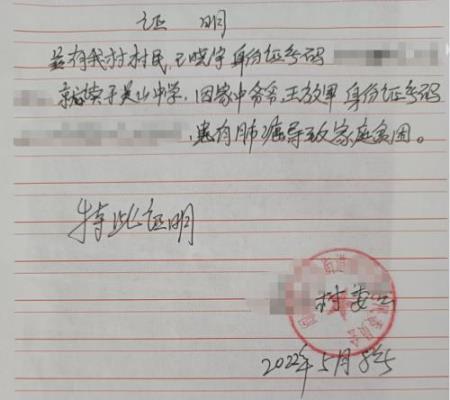 证 明
兹有我村村民，王晓宇身份证号码
就读于英山中学，因家中爷爷，王放甲身份证号码
，患有肺癌导致家庭贫困。
特此证明
村委会
2022年5月8号